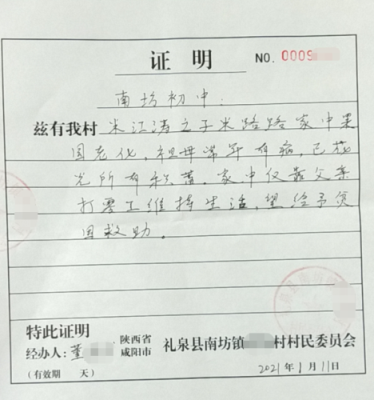 证 明
NO. 0009
南坊初中:
兹有我村 米江涛之子米路路家中果
园老化,祖母常年有病,已花
光所有积蓄,家中仅靠父亲
打零工维持生活,望给予贫
困救助。
特此证明
经办人:董
陕西省
咸阳市
礼泉县南坊镇 村村民委员会
(有效期 天)
2021年1月11日